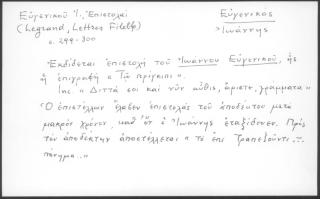 Εὐγενικοῦ Ἰ., Ἐπιστολαί
(Legrand, Lettres Filelfe)
σ. 299-300
Εὐγενικος
Ἰωάννης
Ἐκδίδεται ἐπιστολή τοῦ Ἰωάννου Εὐγενικοῦ, ἧς
ἡ ἐπιγραφή « Τῷ πρίγκιπι».
Inc. « Διττά σοι καὶ νῦν αὖθις, ἄριστε, γράμματα»
Ὁ ἐπιστέλλων ἔλαβεν ἐπιστολάς τοῦ ἀποδέκτου μετά
μακρόν χρόνον, καθ' ὅν ὁ Ἰωάννης ἐταξίδευεν. Πρός
τόν ἀποδέκτην ἀποστέλλεται « τό ἐπί Τραπεζοῦντι